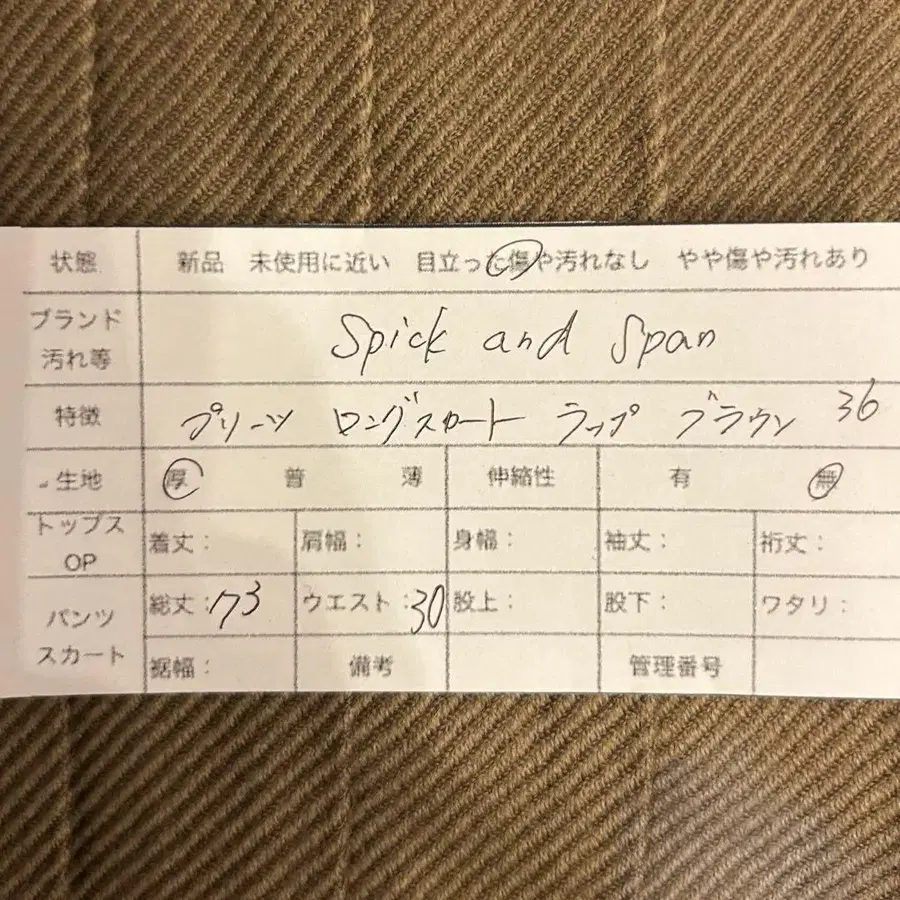 状態 新品 未使用に近い 目立った傷や汚れなし やや傷や汚れあり
ブランド
汚れ等 Spick and Span
特徴 プリーツ ロングスカート ラップ ブラウン 36
生地 厚 普 薄 伸縮性 有 無
トップス
OP 着丈： 肩幅： 身幅： 袖丈： 裄丈：
パンツ
スカート 総丈：73 ウエスト：30 股上： 股下： ワタリ：
裾幅： 備考 管理番号